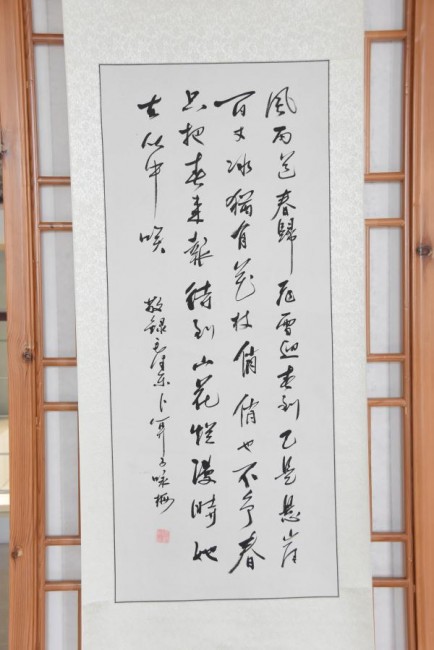 風雨送春歸飛雪迎春到已是懸崖
百丈冰猶有花枝俏俏也不爭春
只把春來報待到山花爛漫時她
在丛中咲
敬錄毛泽东卜算子咏梅